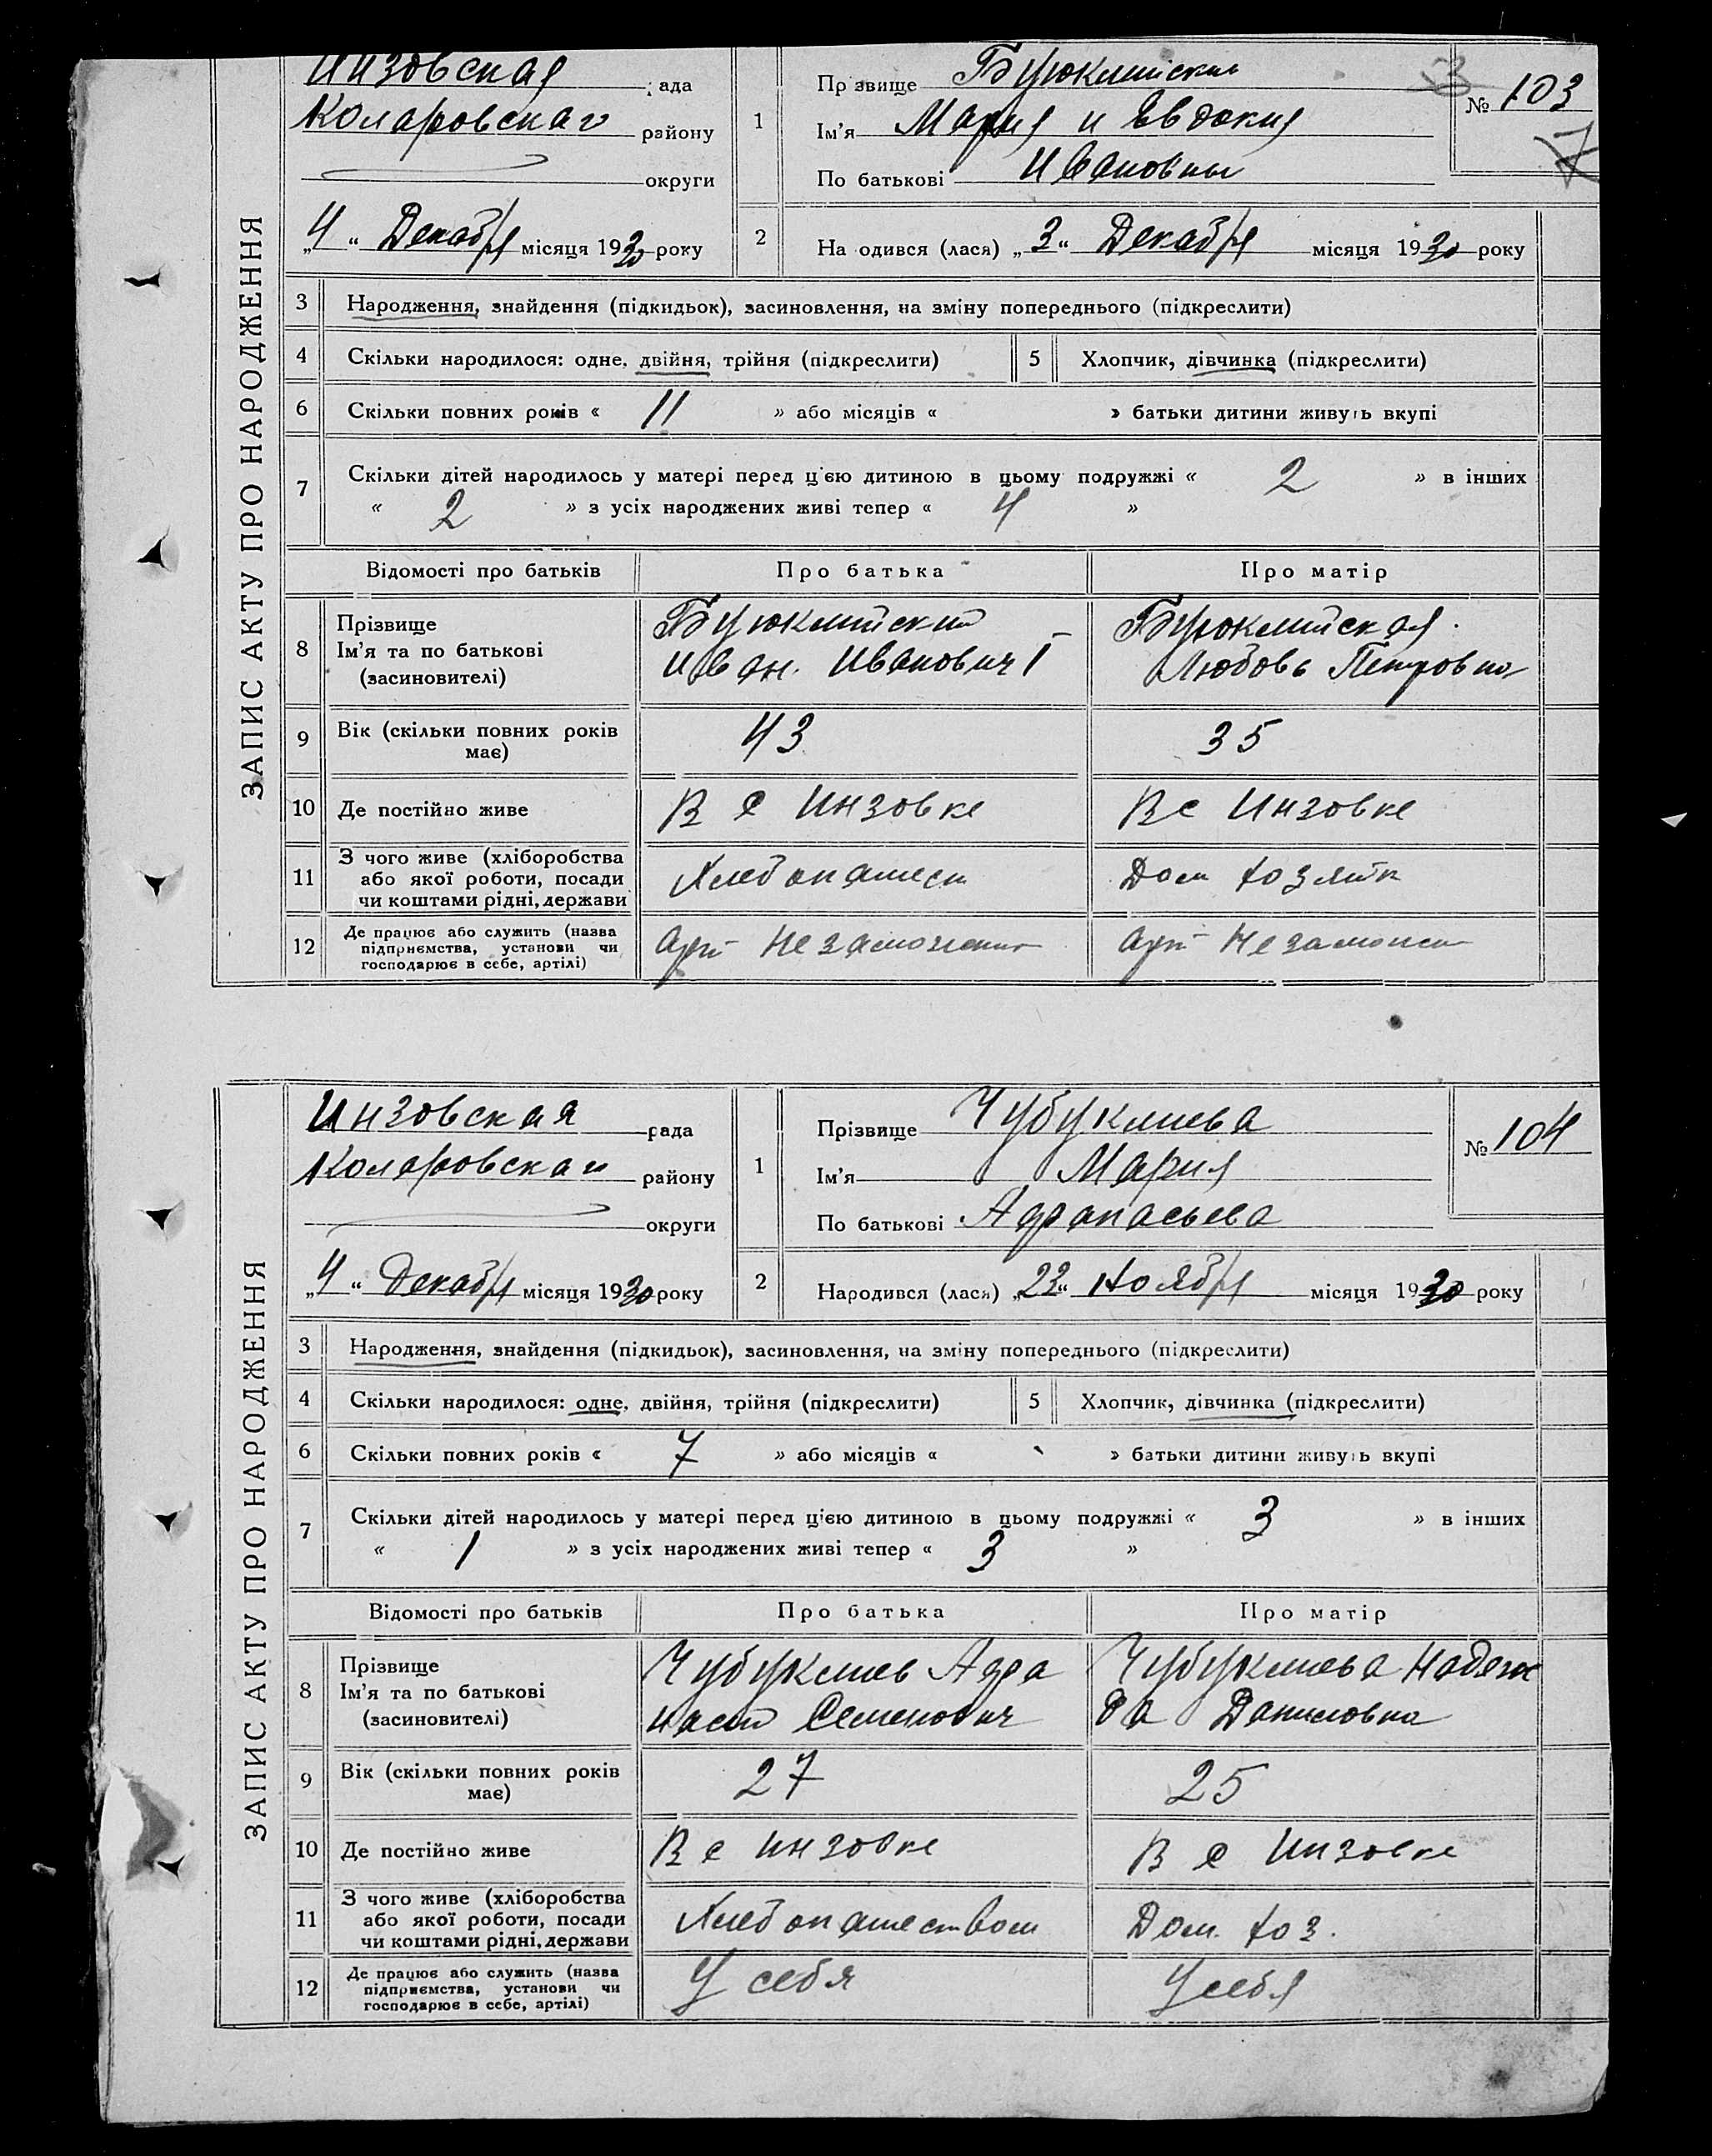 ЗАПИС АКТУ ПРО НАРОДЖЕННЯ
Инзовская рада
Коларовскаго району
округи
„4“ Декабря місяця 1930 року
1 Прізвище Буюклийские
Ім'я Мария и Евдокия
По батькові Ивановны
№ 103
2 На одився (лася) „3“ Декабря місяця 1930 року
3 Народження, знайдення (підкидьок), засиновлення, на зміну попереднього (підкреслити)
4 Скільки народилося: одне, двійня, трійня (підкреслити) 5 Хлопчик, дівчинка (підкреслити)
6 Скільки повних років « 11 » або місяців « » батьки дитини живуть вкупі
7 Скільки дітей народилось у матері перед цією дитиною в цьому подружжі « 2 » в інших
« 2 » з усіх народжених живі тепер « 4 »
Відомості про батьків Про батька Про матір
8 Прізвище
Ім'я та по батькові
(засиновителі)
Буюклийский
Иван. Иванович I
Буюклийская
Любовь Петровна
9 Вік (скільки повних років має) 43 35
10 Де постійно живе В с Инзовке В с Инзовке
11 З чого живе (хліборобства
або якої роботи, посади
чи коштами рідні, держави
Хлебопашест Дом хозяйк
12 Де працює або служить (назва
підприємства, установи чи
господарює в себе, артілі)
Арт Незаможник Арт Незаможн
ЗАПИС АКТУ ПРО НАРОДЖЕННЯ
Инзовская рада
Коларовскаго району
округи
„4“ Декабря місяця 1930 року
1 Прізвище Чубуклиева
Ім'я Мария
По батькові Афанасьева
№ 104
2 Народився (лася) „22“ Ноября місяця 1930 року
3 Народження, знайдення (підкидьок), засиновлення, на зміну попереднього (підкреслити)
4 Скільки народилося: одне, двійня, трійня (підкреслити) 5 Хлопчик, дівчинка (підкреслити)
6 Скільки повних років « 7 » або місяців « » батьки дитини живуть вкупі
7 Скільки дітей народилось у матері перед цією дитиною в цьому подружжі « 3 » в інших
« 1 » з усіх народжених живі тепер « 3 »
Відомості про батьків Про батька Про матір
8 Прізвище
Ім'я та по батькові
(засиновителі)
Чубуклиев Афа
насий Семенович
Чубуклиева Надеж
да Даниловна
9 Вік (скільки повних років має) 27 25
10 Де постійно живе В с Инзовке В с Инзовке
11 З чого живе (хліборобства
або якої роботи, посади
чи коштами рідні, держави
Хлебопашеством Дом. хоз.
12 Де працює або служить (назва
підприємства, установи чи
господарює в себе, артілі)
У себя У себя